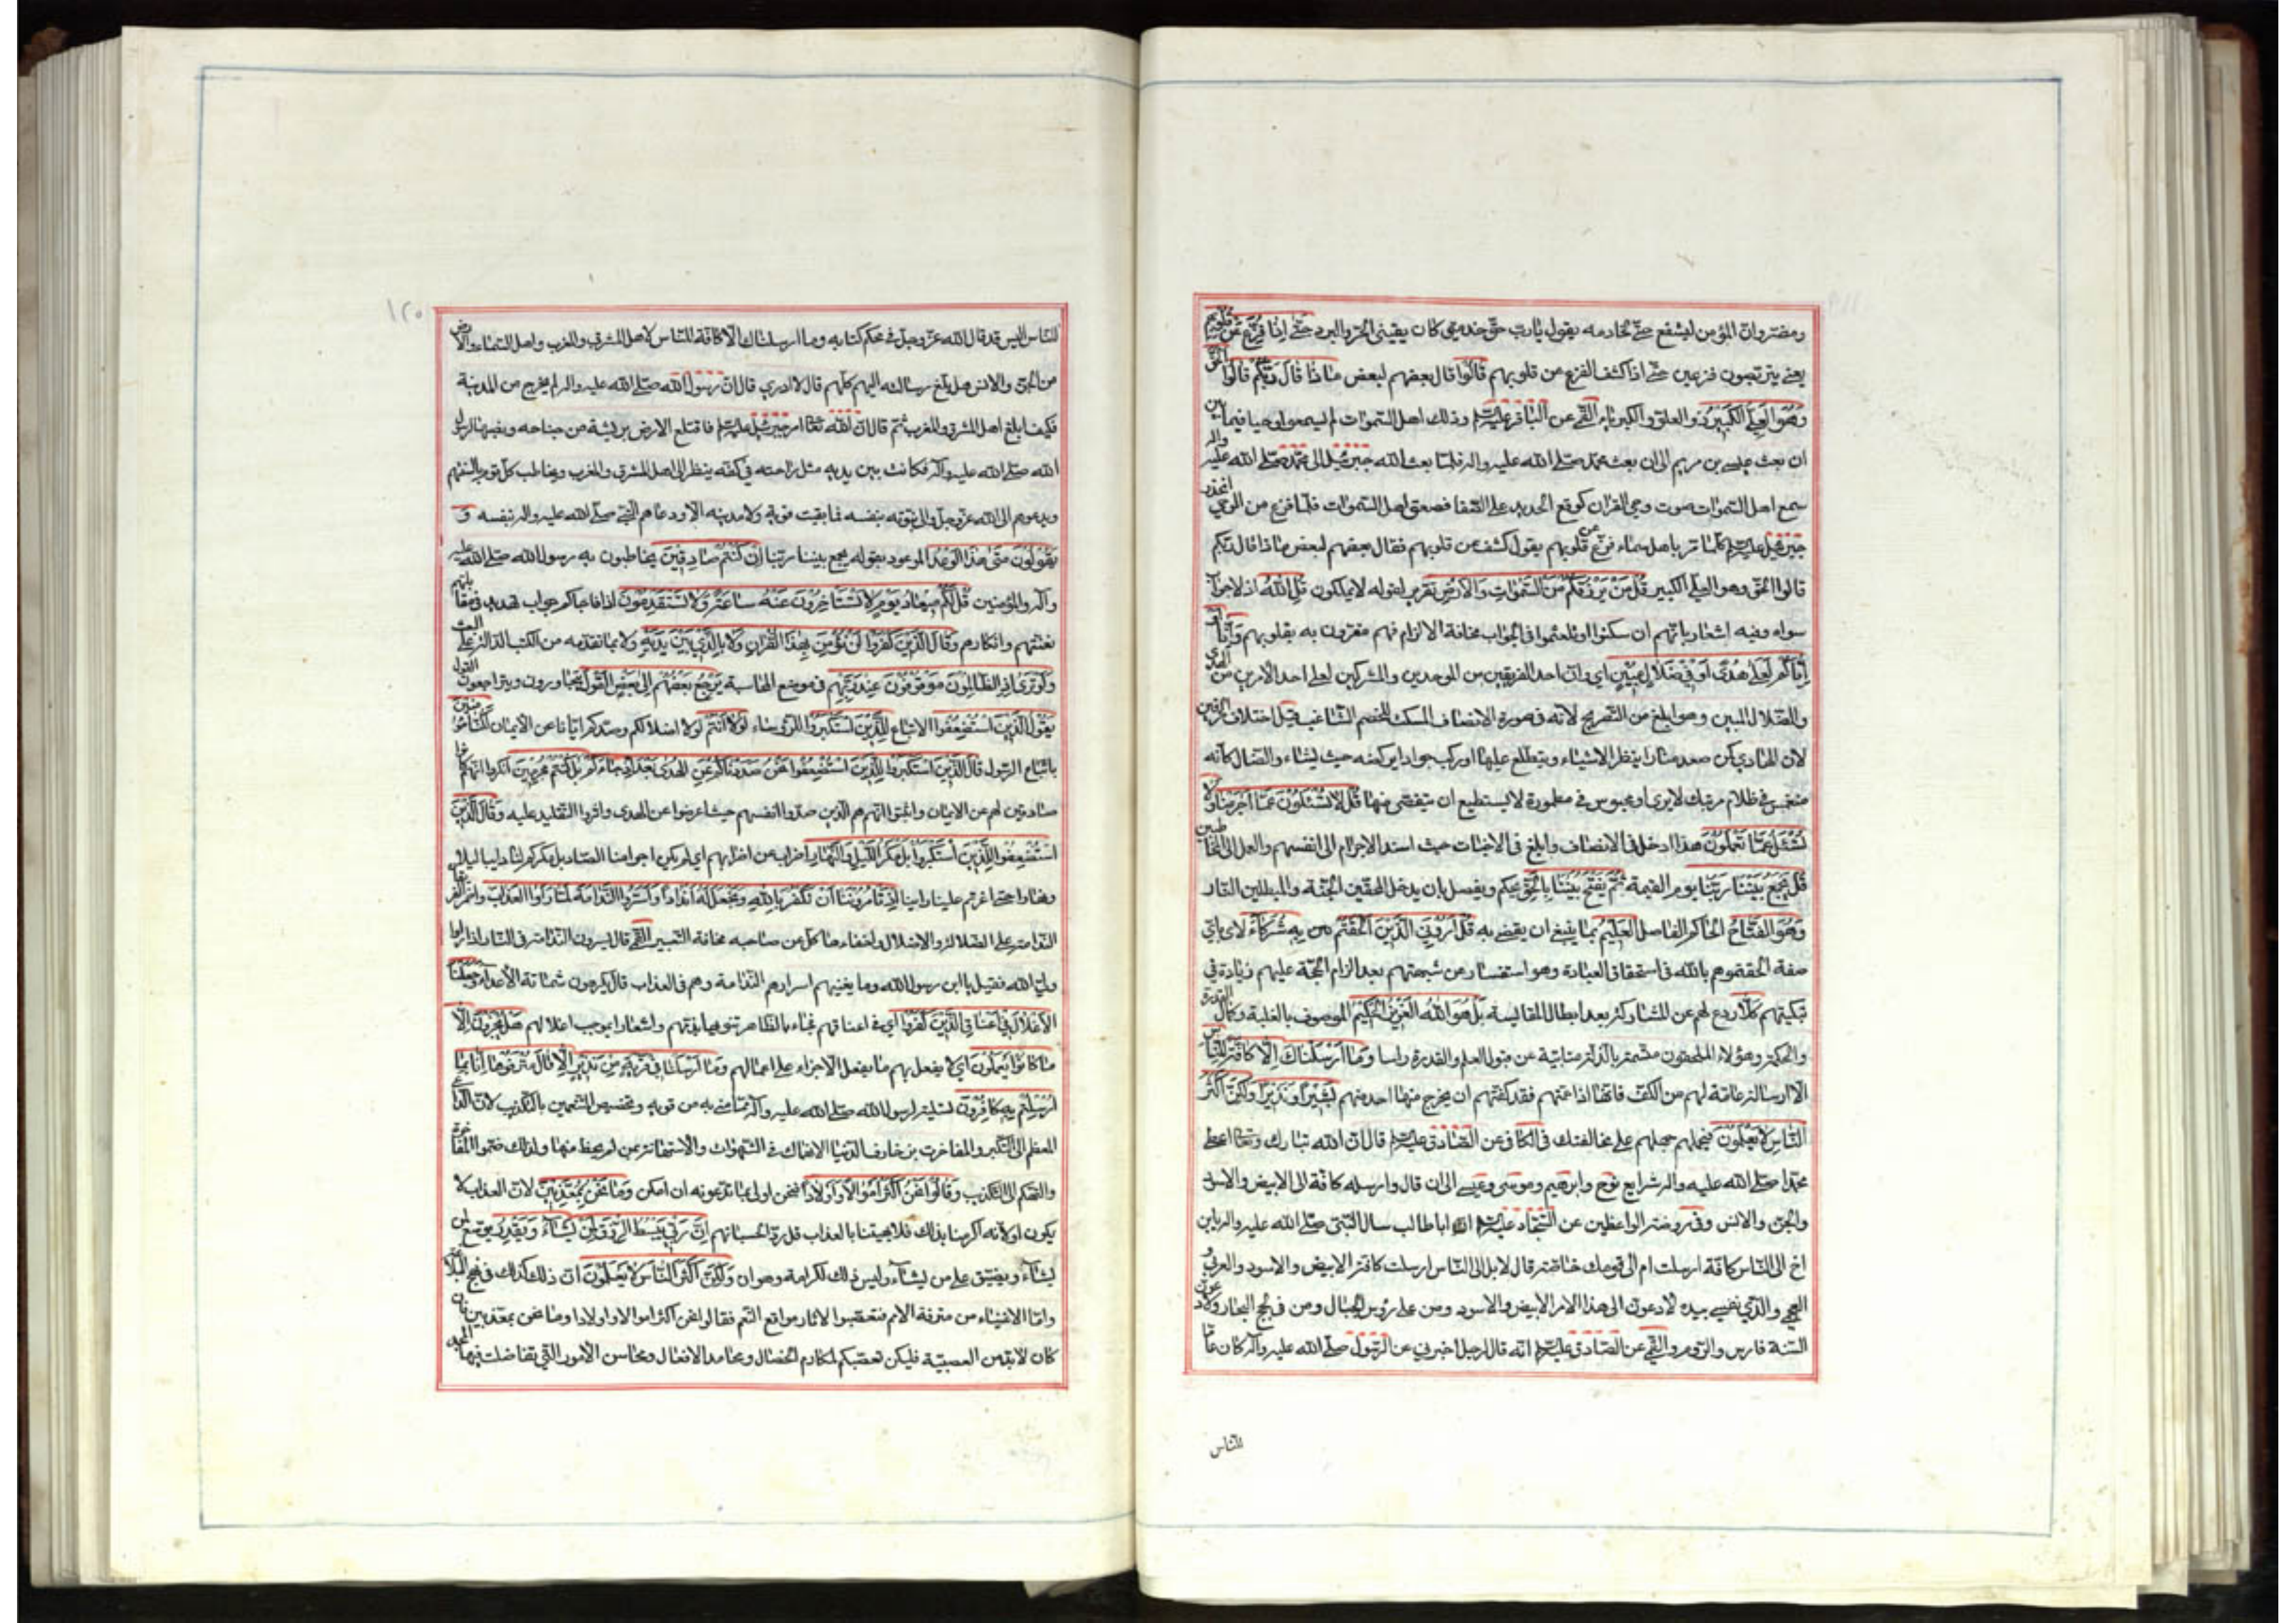 ومضر وان المؤمن ليشفع حتى لخادمه يقول يا رب حق خدمتي كان يقيني الحر والبرد حتى اذا فزع عن قلوبهم
يعني يتربصون فزعين حتى اذا كشف الفزع من قلوبهم قالوا قال بعضهم لبعض ماذا قال ربكم قالوا الحق
وهو العلي الكبير ذو العلو والكبرياء القمي عن الباقر عليه السلام وذلك اهل السموات لم يسمعوا وحيا فيما بين
ان بعث عيسى بن مريم الى ان بعث محمد صلى الله عليه واله فلما بعث الله جبرئيل الى محمد صلى الله عليه واله
سمع اهل السموات صوت وحي القران كوقع الحديد على الصفا فصعق اهل السموات فلما فرغ من الوحي انحدر
جبرئيل عليه السلام كلما مر باهل سماء فزع عن قلوبهم يقول كشف عن قلوبهم فقال بعضهم لبعض ماذا قال ربكم
قالوا الحق وهو العلي الكبير قل من يرزقكم من السموات والارض تقرير لقوله لا يملكون قل الله اذ لا جواب
سواه وفيه اشعار بانهم ان سكتوا او تلعثموا في الجواب مخافة الالزام فهم مقرون به بقلوبهم وانا او
اياكم لعلى هدى او في ضلال مبين اي وان احد الفريقين من الموحدين والمشركين لعلى احد الامرين من الهدى
والضلال المبين وهو ابلغ من التصريح لانه في صورة الانصاف المسكت للخصم الشاغب قيل اختلاف الحرفين
لان الهادي كمن صعد منارا ينظر الاشياء ويتطلع عليها او ركب جوادا يركضه حيث يشاء والضال كانه
منغمس في ظلام مرتبك لا يرى او محبوس في مطمورة لا يستطيع ان يتفصى منها قل لا تسئلون عما اجرمنا ولا
نسئل عما تعملون هذا ادخل في الانصاف وابلغ في الاخبات حيث اسند الاجرام الى انفسهم والعمل الى المخاطبين
قل يجمع بيننا ربنا يوم القيمة ثم يفتح بيننا بالحق يحكم ويفصل بان يدخل المحقين الجنة والمبطلين النار
وهو الفتاح الحاكم الفاصل العليم بما ينبغي ان يقضى به قل اروني الذين الحقتم به شركاء لارى باي
صفة الحقتموهم بالله في استحقاق العبادة وهو استفسار عن شبهتهم بعد الزام الحجة عليهم زيادة في
تبكيتهم كلا ردع لهم عن المشاركة بعد ابطال المقايسة بل هو الله العزيز الحكيم الموصوف بالغلبة وكمال القدرة
والحكمة وهؤلاء الملحقون متسمة بالذلة متابية عن قبول العلم والقدرة راسا وما ارسلناك الا كافة للناس
الا ارسالة عامة لهم من الكف فانها اذا عمتهم فقد كفتهم ان يخرج منها احد منهم بشيرا ونذيرا ولكن اكثر
الناس لا يعلمون فيحملهم جهلهم على مخالفتك في الكافي عن الصادق عليه السلام قال ان الله تبارك وتعالى اعطى
محمدا صلى الله عليه واله شرايع نوح وابرهيم وموسى وعيسى الى ان قال وارسله كافة الى الابيض والاسود
والجن والانس وفي روضة الواعظين عن السجاد عليه السلام ان ابا طالب سال النبي صلى الله عليه واله يا بن
اخ الى الناس كافة ارسلت ام الى قومك خاصة قال لا بل الى الناس ارسلت كافة الابيض والاسود والعربي و
العجمي والذي نفسي بيده لادعون الى هذا الامر الابيض والاسود ومن على رؤس الجبال ومن في لجج البحار ولادعون
السنة فارس والروم والقمي عن الصادق عليه السلام انه قال لرجل اخبرني عن الرسول صلى الله عليه واله كان عاما
للناس
١٢٠
للناس اليس قد قال الله عز وجل في محكم كتابه وما ارسلناك الا كافة للناس لاهل المشرق والمغرب واهل السماء والارض
من الجن والانس هل بلغ رسالته اليهم كلهم قال لا ادري قال ان رسول الله صلى الله عليه واله لم يخرج من المدينة
فكيف ابلغ اهل المشرق والمغرب ثم قال ان الله تعالى امر جبرئيل عليه السلام فاقتلع الارض بريشة من جناحه ونصبها لرسول
الله صلى الله عليه وآله فكانت بين يديه مثل راحته في كفه ينظر الى اهل المشرق والمغرب ويخاطب كل قوم بالسنتهم
ويدعوهم الى الله عز وجل والى نبوته بنفسه فما بقيت قرية ولا مدينة الا ودعاهم النبي صلى الله عليه واله بنفسه و
يقولون متى هذا الوعد الموعود بقوله يجمع بيننا ربنا ان كنتم صادقين يخاطبون به رسول الله صلى الله عليه
وآله والمؤمنين قل لكم ميعاد يوم لا تستاخرون عنه ساعة ولا تستقدمون اذا فاجاكم جواب تهديد في مقابلة
تعنتهم وانكارهم وقال الذين كفروا لن نؤمن بهذا القران ولا بالذي بين يديه ولا بما تقدمه من الكتب الدالة على البعث
ولو ترى اذ الظالمون موقوفون عند ربهم في موضع المحاسبة يرجع بعضهم الى بعض القول يتحاورون ويتراجعون القول
يقول الذين استضعفوا الاتباع للذين استكبروا للرؤساء لولا انتم لولا اضلالكم وصدكم ايانا عن الايمان لكنا مؤمنين
باتباع الرسول قال الذين استكبروا للذين استضعفوا انحن صددناكم عن الهدى بعد اذ جاءكم بل كنتم مجرمين انكروا انهم كانوا
صادين لهم عن الايمان واثبتوا انهم هم الذين صدوا انفسهم حيث اعرضوا عن الهدى واثروا التقليد عليه وقال الذين
استضعفوا للذين استكبروا بل مكر الليل والنهار اضراب عن اضرابهم اي لم يكن اجرامنا الصاد بل مكركم لنا دايبا ليلا
ونهارا حتى اغرتم علينا راينا اذ تامروننا ان نكفر بالله ونجعل له اندادا واسروا الندامة لما راوا العذاب واضمر الفريقان
الندامة على الضلالة والاضلال واخفاها كل عن صاحبه مخافة التعيير القمي قال يسرون الندامة في النار اذا راوا
ولي الله فقيل يا ابن رسول الله وما يغنيهم اسرارهم الندامة وهم في العذاب قال يكرهون شماتة الاعداء وجعلنا
الاغلال في اعناق الذين كفروا اي في اعناقهم فجاء بالظاهر تنويها بذمهم واشعارا بموجب اغلالهم هل يجزون الا
ما كانوا يعملون اي لا يفعل بهم ما يفعل الا جزاء على اعمالهم وما ارسلنا في قرية من نذير الا قال مترفوها انا بما
ارسلتم به كافرون تسلية لرسول الله صلى الله عليه وآله مما مني به من قومه وتخصيص المتنعمين بالتكذيب لان الداعي
المعظم الى التكبر والمفاخرة بزخارف الدنيا الانهماك في الشهوات والاستهانة بمن لم يحظ منها ولذلك ضموا المفاخرة
والتهكم الى التكذيب وقالوا نحن اكثر اموالا واولادا فنحن اولى بما تدعونه ان امكن وما نحن بمعذبين لان العذاب لا
يكون او لانه اكرمنا بذلك فلا يهيننا بالعذاب قل رد الحسبانهم ان ربي يبسط الرزق لمن يشاء ويقدر يوسع لمن
يشاء ويضيق على من يشاء وليس ذلك لكرامة وهوان ولكن اكثر الناس لا يعلمون ان ذلك كذلك في نهج البلاغة
واما الاغنياء من مترفة الامم فتعصبوا لاثار مواقع النعم فقالوا نحن اكثر اموالا واولادا وما نحن بمعذبين فان
كان لا بد من العصبية فليكن تعصبكم لمكارم الخصال ومحامد الافعال ومحاسن الامور التي تفاضلت فيها المجداء